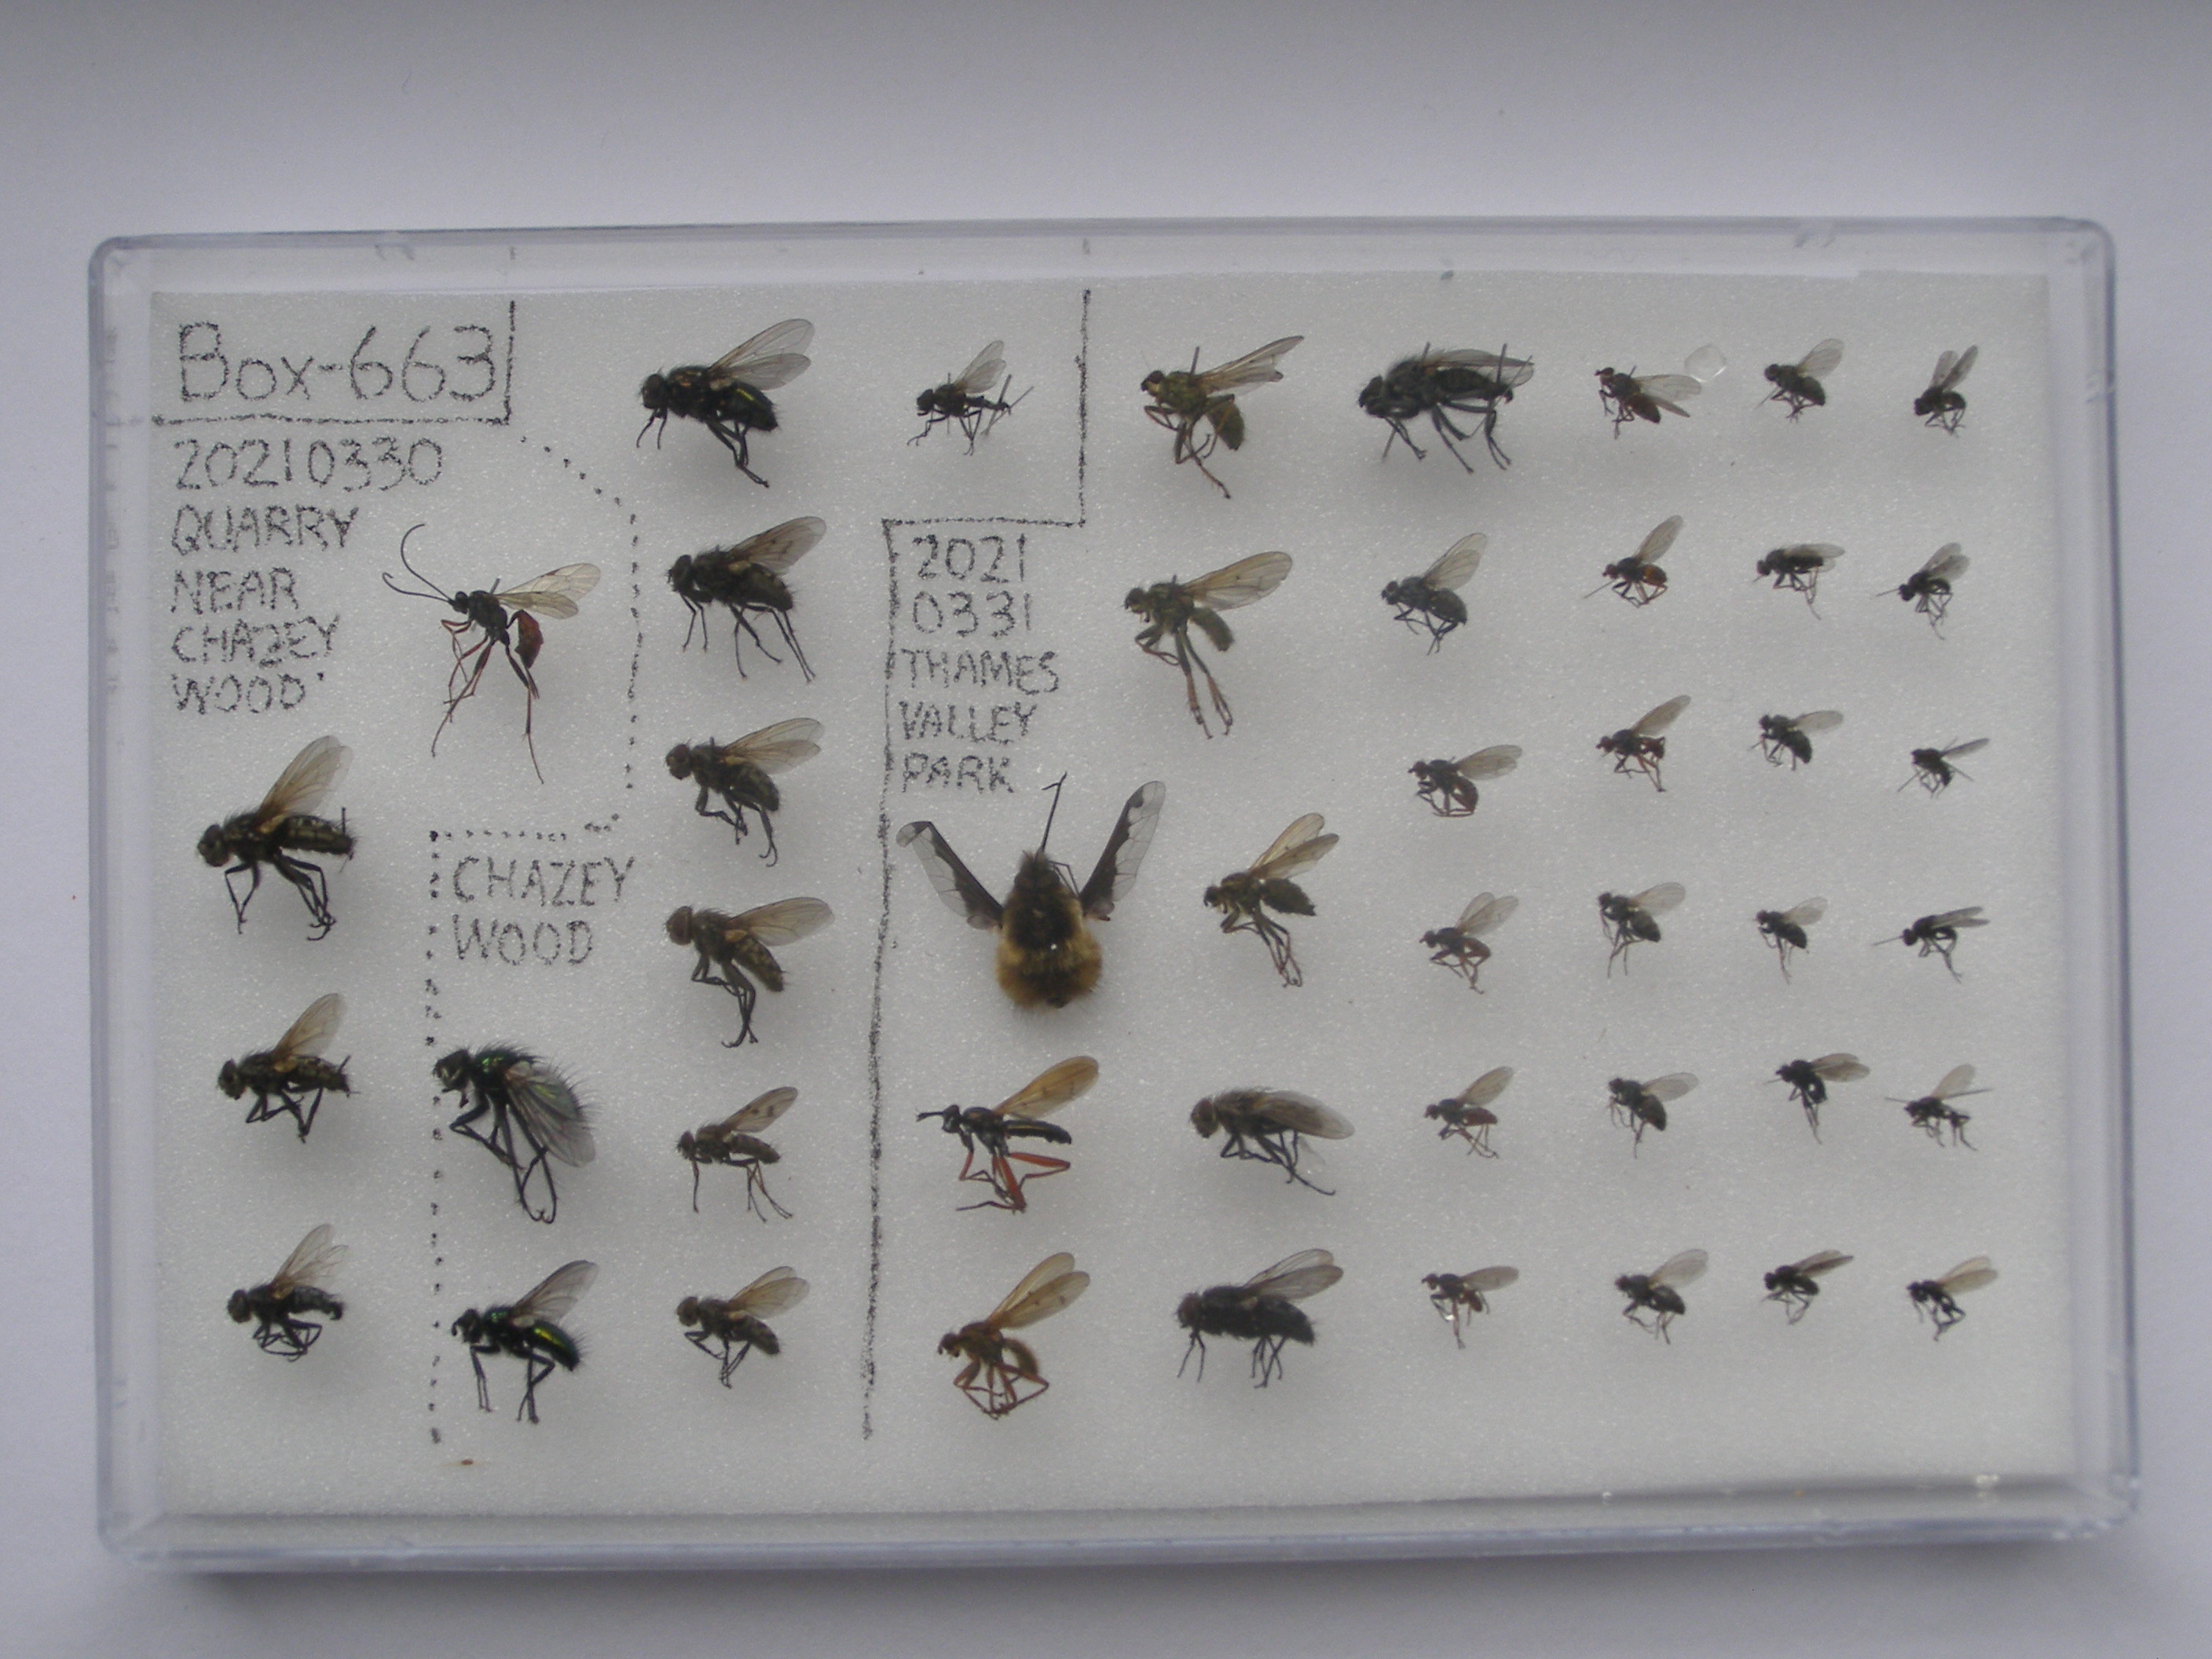 Box-663
20210330
QUARRY
NEAR
CHAZEY
WOOD
CHAZEY
WOOD
2021
0331
THAMES
VALLEY
PARK